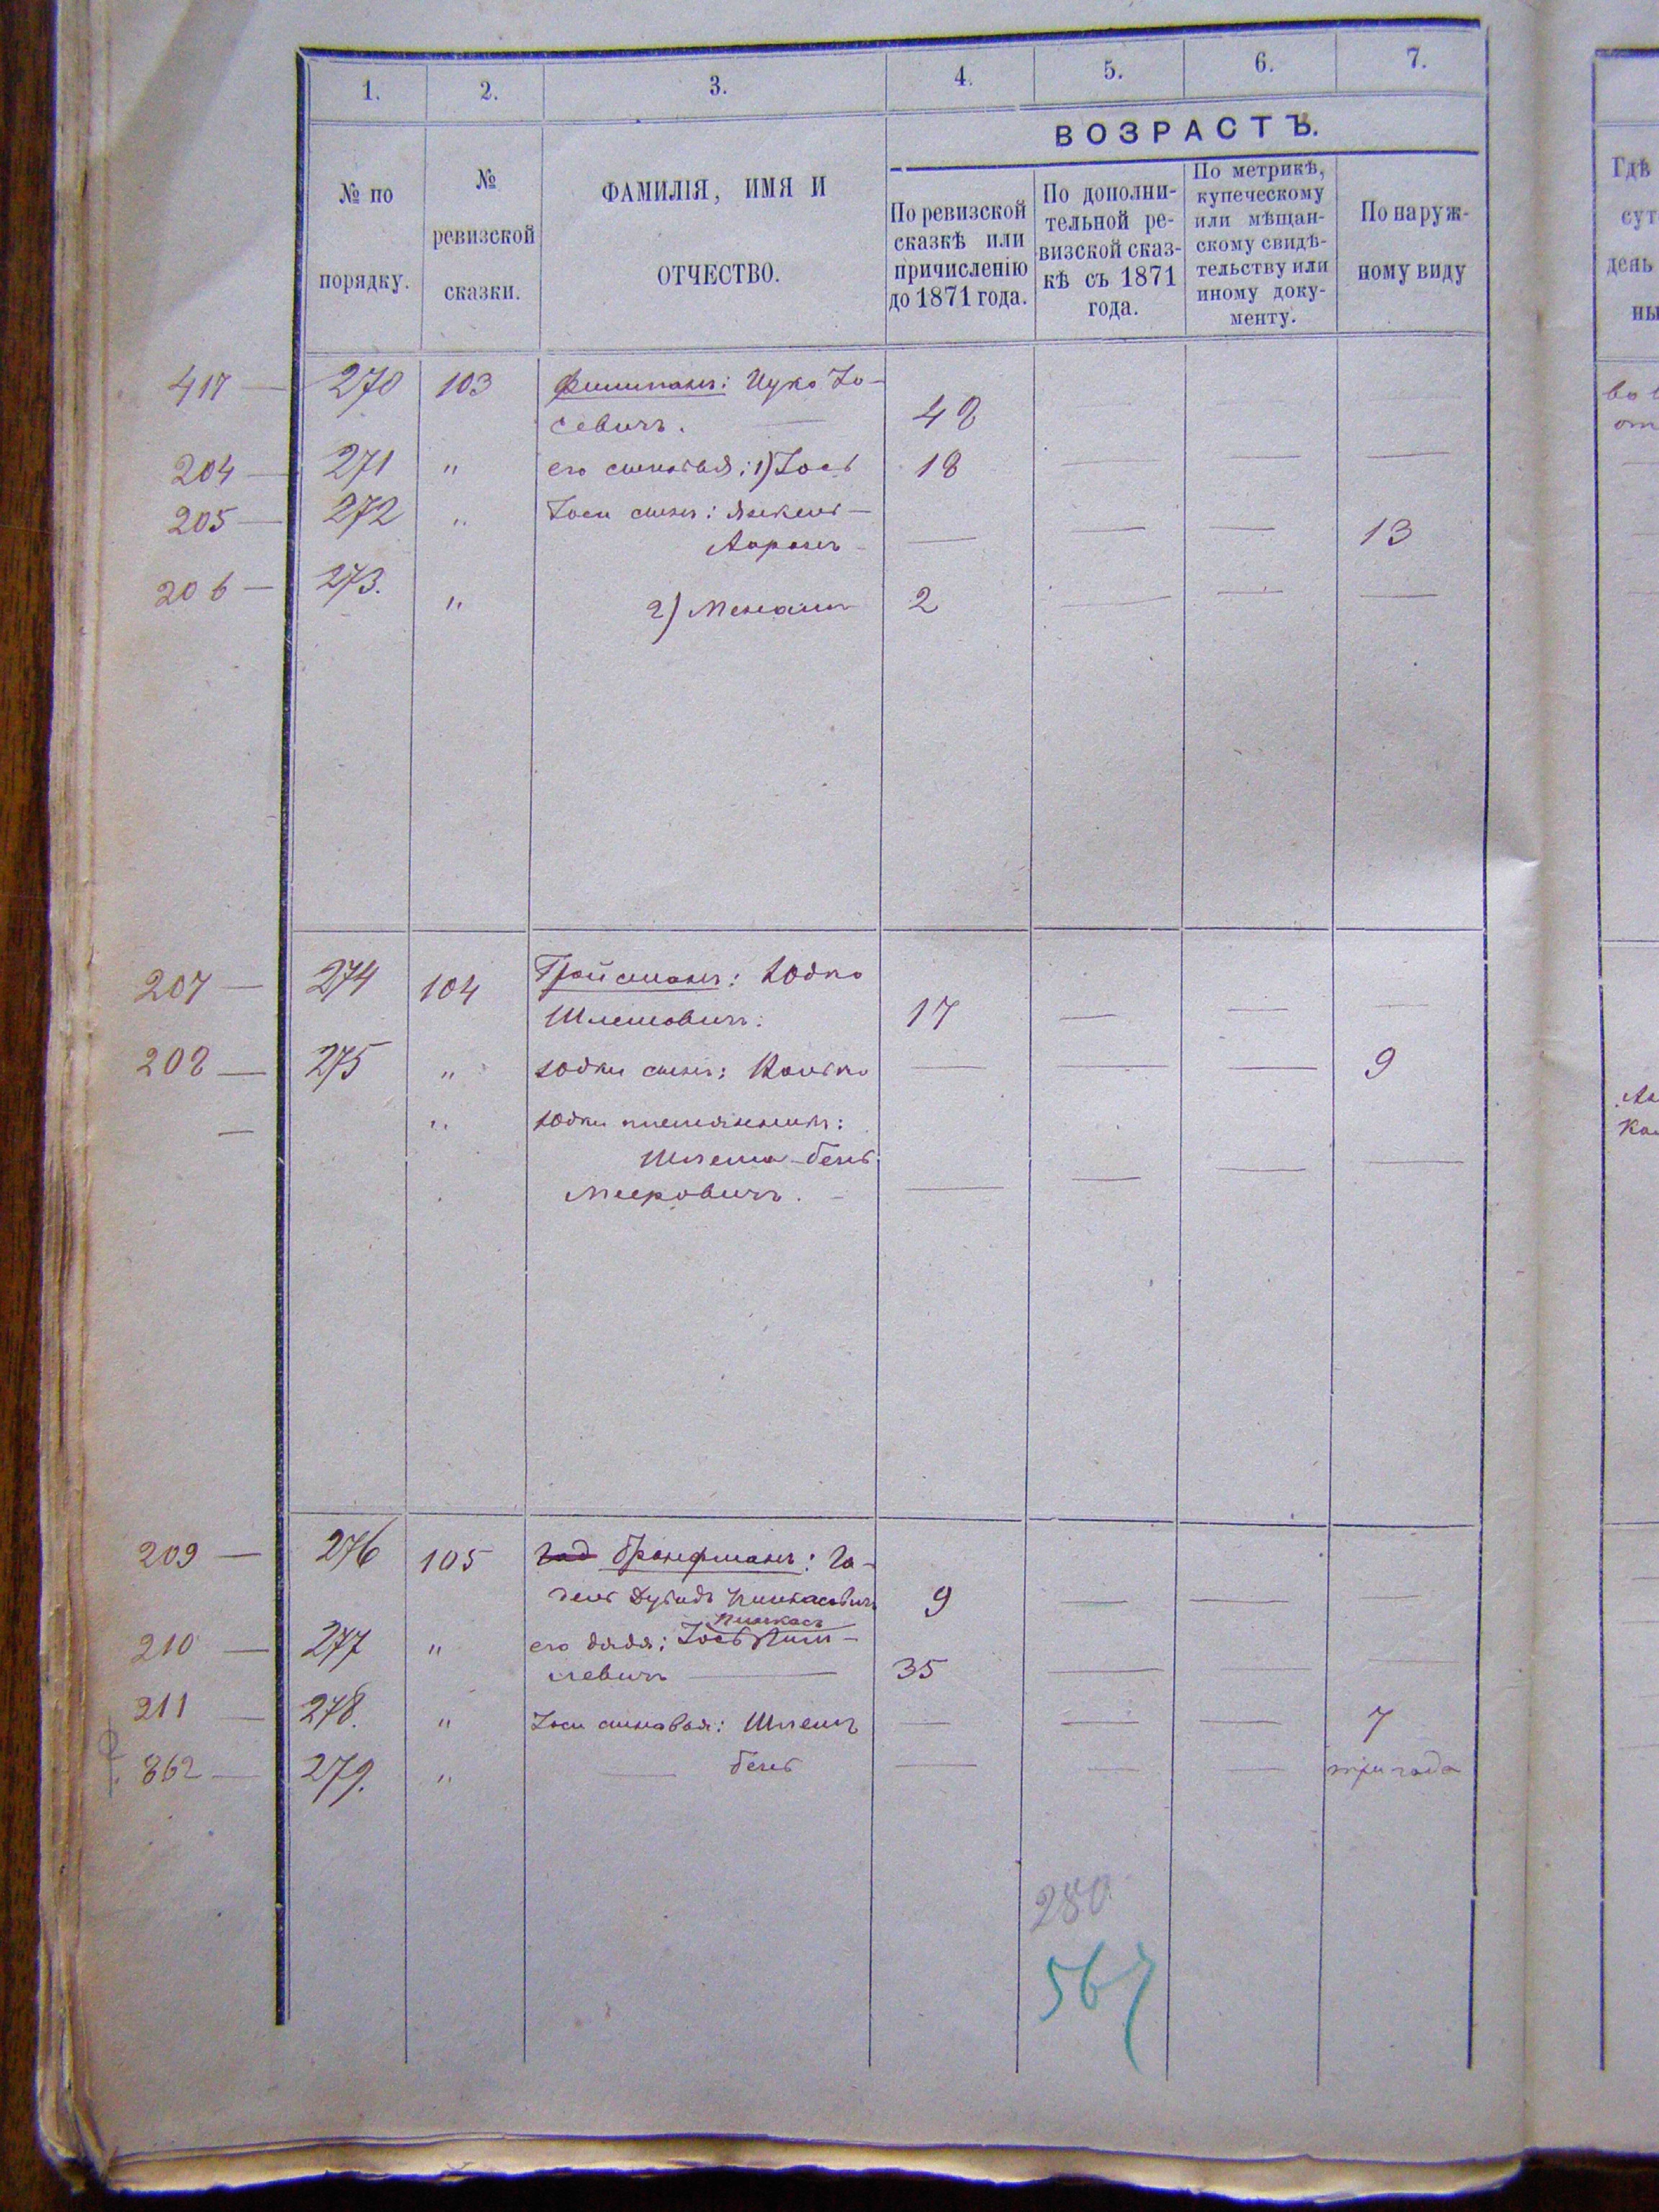 1. 2. 3. 4. 5. 6. 7.
ВОЗРАСТЪ.
№ по
порядку.
№
ревизской
сказки.
ФАМИЛІЯ, ИМЯ И
ОТЧЕСТВО.
По ревизской
сказкѣ или
причисленію
до 1871 года.
По дополни-
тельной ре-
визской сказ-
кѣ съ 1871
года.
По метрикѣ,
купеческому
или мѣщан-
скому свидѣ-
тельству или
иному доку-
менту.
По наруж-
ному виду
Гдѣ
сут
день
ны
417 — 270 103 Ицко Іо-
севичъ. — 48 — — —
204 — 271 " его сыновья: 1) Іось 18 — — —
205 — 272 " Іоси сынъ: Янкель —
Ааронъ — — — — 13
206 — 273. " 2) 2 — — —
207 — 274 104 Гройсманъ: Юдко
Шлемовичъ: 17 — — —
208 — 275 " Юдки сынъ: — — — 9
— " Юдки племянникъ:
Шлема-Бень
Меировичъ. — — — — —
209 — 276 105 Год Бронфманъ: Го-
дель Дувидъ Пинкасовичъ 9 — — —
Пинкасъ
210 — 277 " его дядя: Іось
левичъ — 35 — — —
211 — 278. " Іоси сыновья: Шлема — — — 7
862 — 279. " — Бень — — — три года
280
567